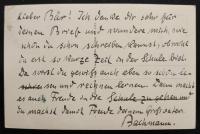 Lieber Bär! Ich danke dir sehr für
deinen Brief und wundere mich, wie
schön du schon schreiben kannst, obwohl
du erst so kurze Zeit in der Schule bist.
Da wirst du gewiß auch eben so schön
und rechnen lernen. Dann macht
es auch Freude in die Schule zu gehen und
du machst damit Freude deinen
Bachmann.